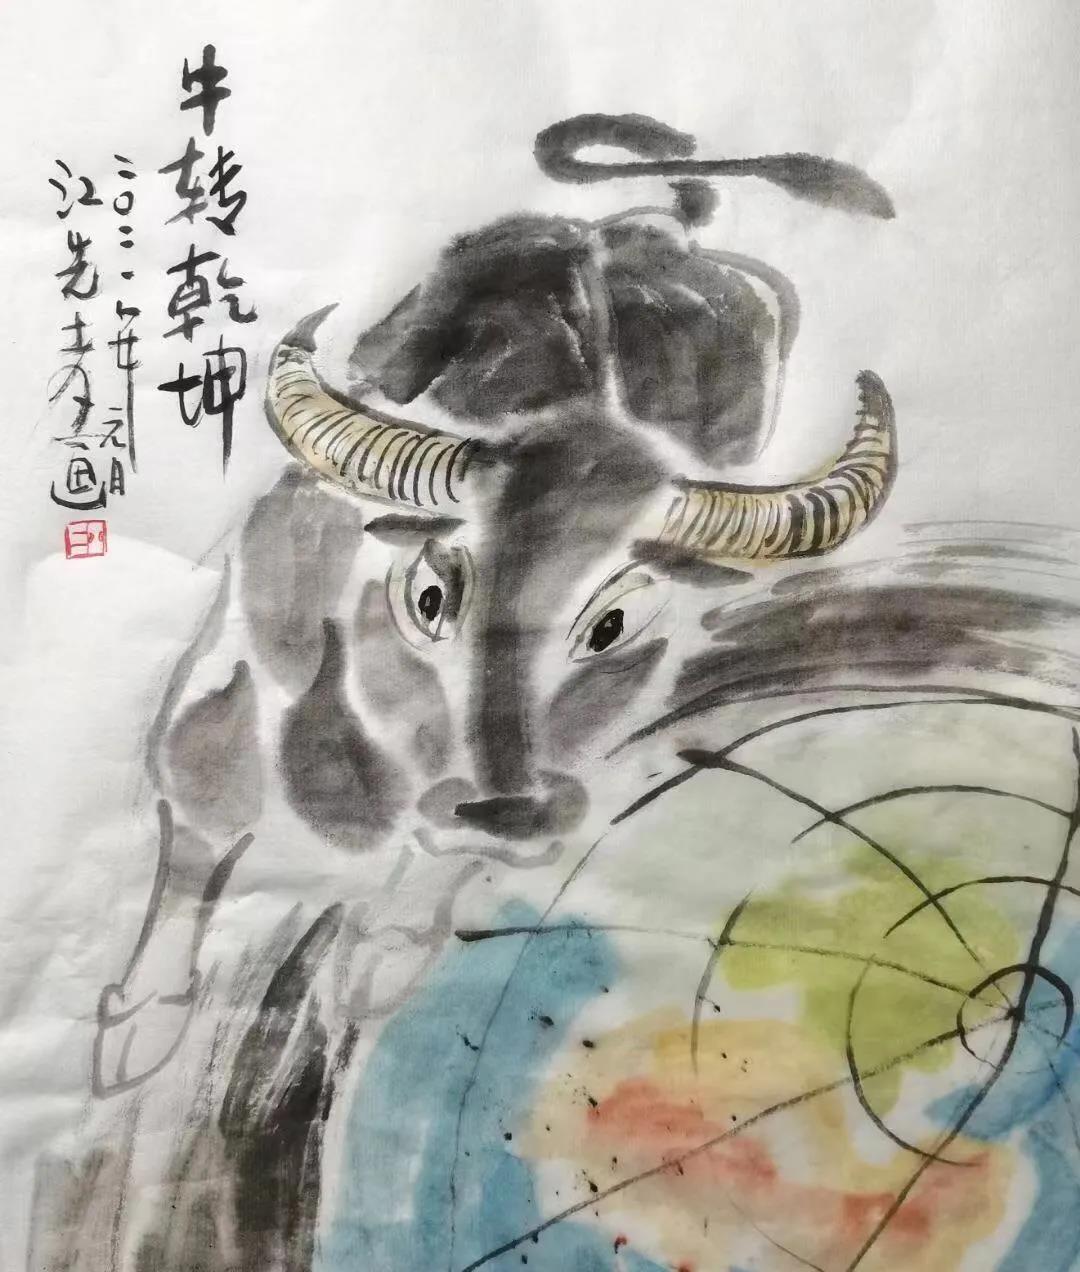 牛转乾坤
二〇二一年元月
江先孝画